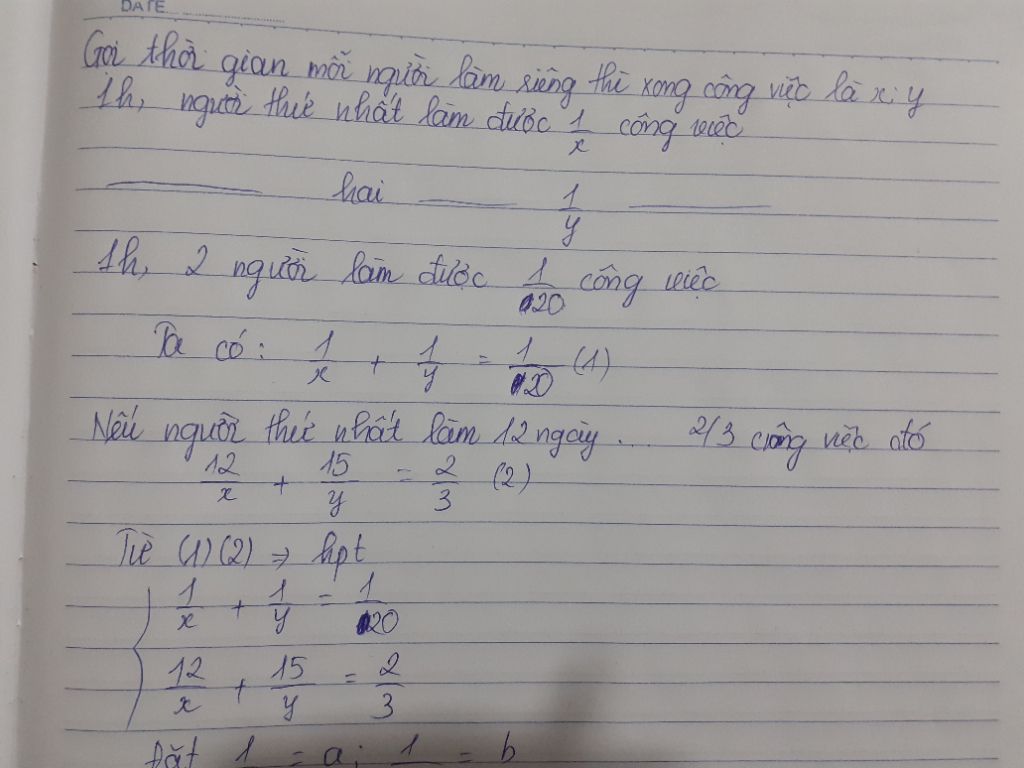 DATE
Gọi thời gian mỗi người làm riêng thì xong công việc là x; y
1h, người thứ nhất làm được 1/x công việc
hai 1/y
1h, 2 người làm được 1/20 công việc
Ta có: 1/x + 1/y = 1/20 (1)
Nếu người thứ nhất làm 12 ngày ... 2/3 công việc đó
12/x + 15/y = 2/3 (2)
Từ (1)(2) => hpt
1/x + 1/y = 1/20
12/x + 15/y = 2/3
Đặt 1 = a; 1 = b